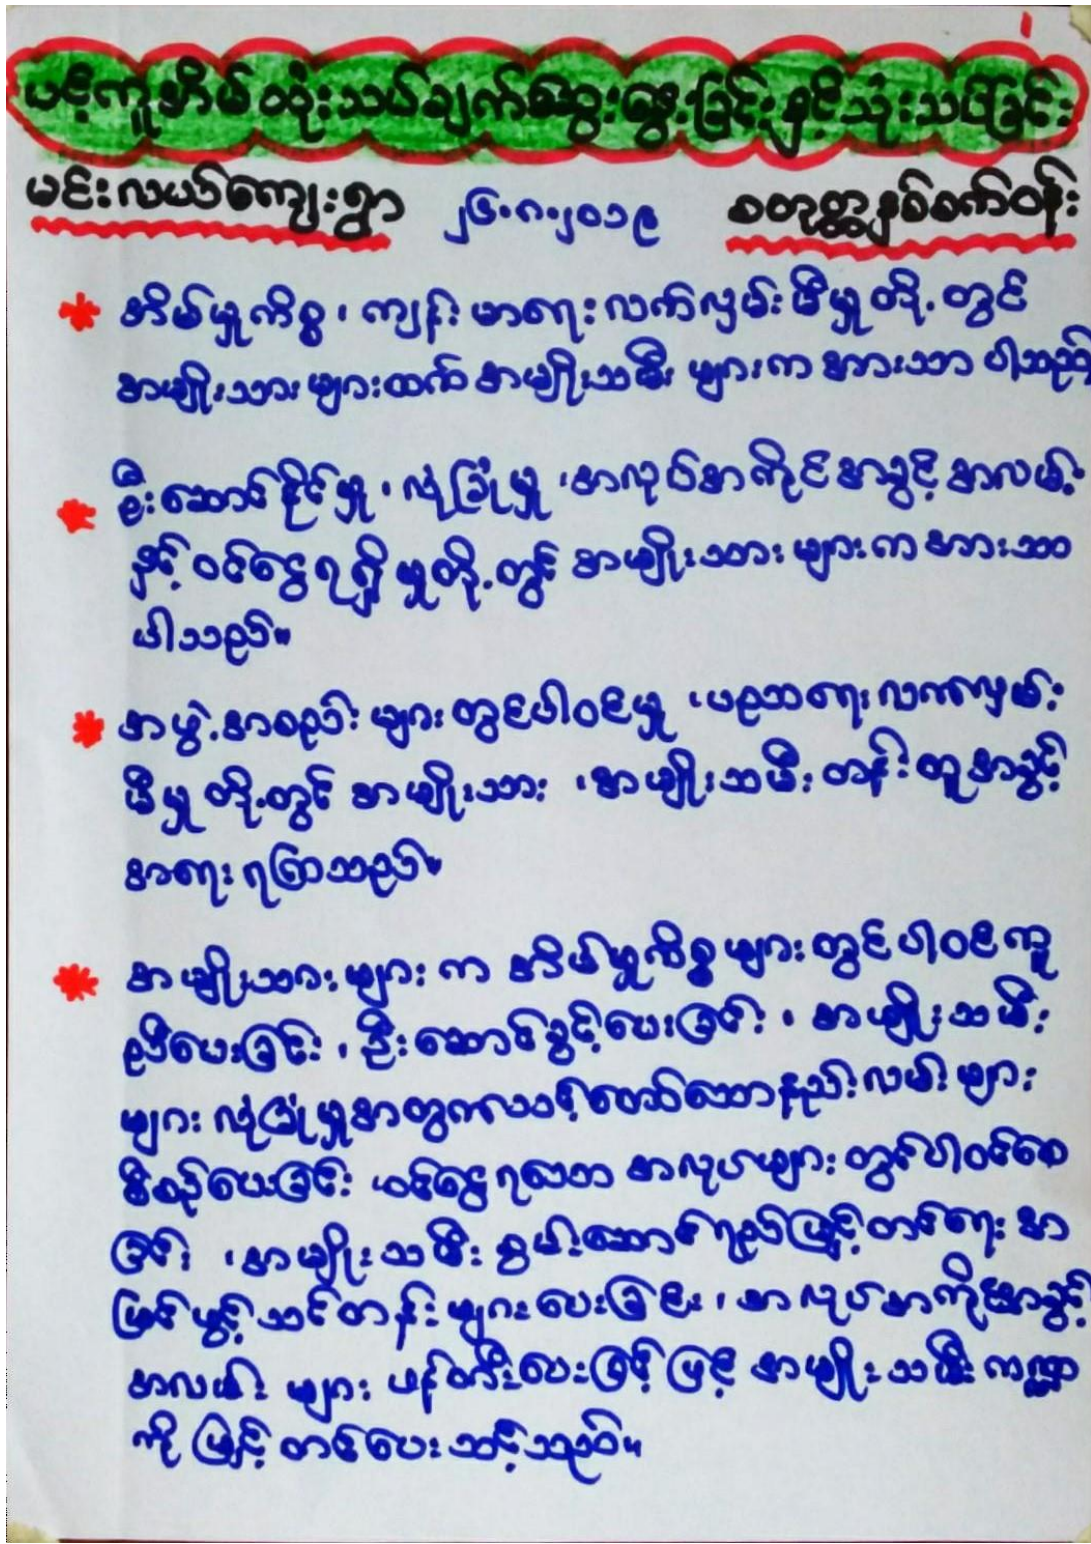 ပင့်ကူအိမ်သုံးသပ်ချက်ဆွေးနွေးခြင်းနှင့်သုံးသပ်ခြင်း
မင်းလယ်ကျေးရွာ ၂၆.၈.၂၀၁၉ စတုတ္ထနှစ်စက်ဝန်း
အိမ်မှုကိစ္စ၊ ကျန်းမာရေးလက်လှမ်းမီမှုတို့တွင်
အမျိုးသားများထက် အမျိုးသမီးများက အားသာပါသည်
ဦးဆောင်နိုင်မှု၊ လုံခြုံမှု၊ အလုပ်အကိုင်အခွင့်အလမ်း
နှင့် ဝင်ငွေရရှိမှုတို့တွင် အမျိုးသားများက အားသာ
ပါသည်။
အဖွဲ့အစည်းများတွင်ပါဝင်မှု၊ ပညာရေးလက်လှမ်း
မီမှုတို့တွင် အမျိုးသား၊ အမျိုးသမီးတန်းတူအခွင့်
အရေးရကြသည်။
အမျိုးသားများက အိမ်မှုကိစ္စများတွင်ပါဝင်ကူ
ညီပေးခြင်း၊ ဦးဆောင်ခွင့်ပေးခြင်း၊ အမျိုးသမီး
များလုံခြုံမှုအတွက်သင့်တော်သောနည်းလမ်းများ
စီစဉ်ပေးခြင်း ဝင်ငွေရသော အလုပ်များတွင်ပါဝင်စေ
ခြင်း၊ အမျိုးသမီးစွမ်းဆောင်ရည်မြှင့်တင်ရေး အ
မြင်ဖွင့်သင်တန်းများပေးခြင်း၊ အလုပ်အကိုင်အခွင့်
အလမ်းများ ဖန်တီးပေးခြင့်ဖြင့် အမျိုးသမီးကဏ္ဍ
ကို မြှင့်တင်ပေးသင့်သည်။